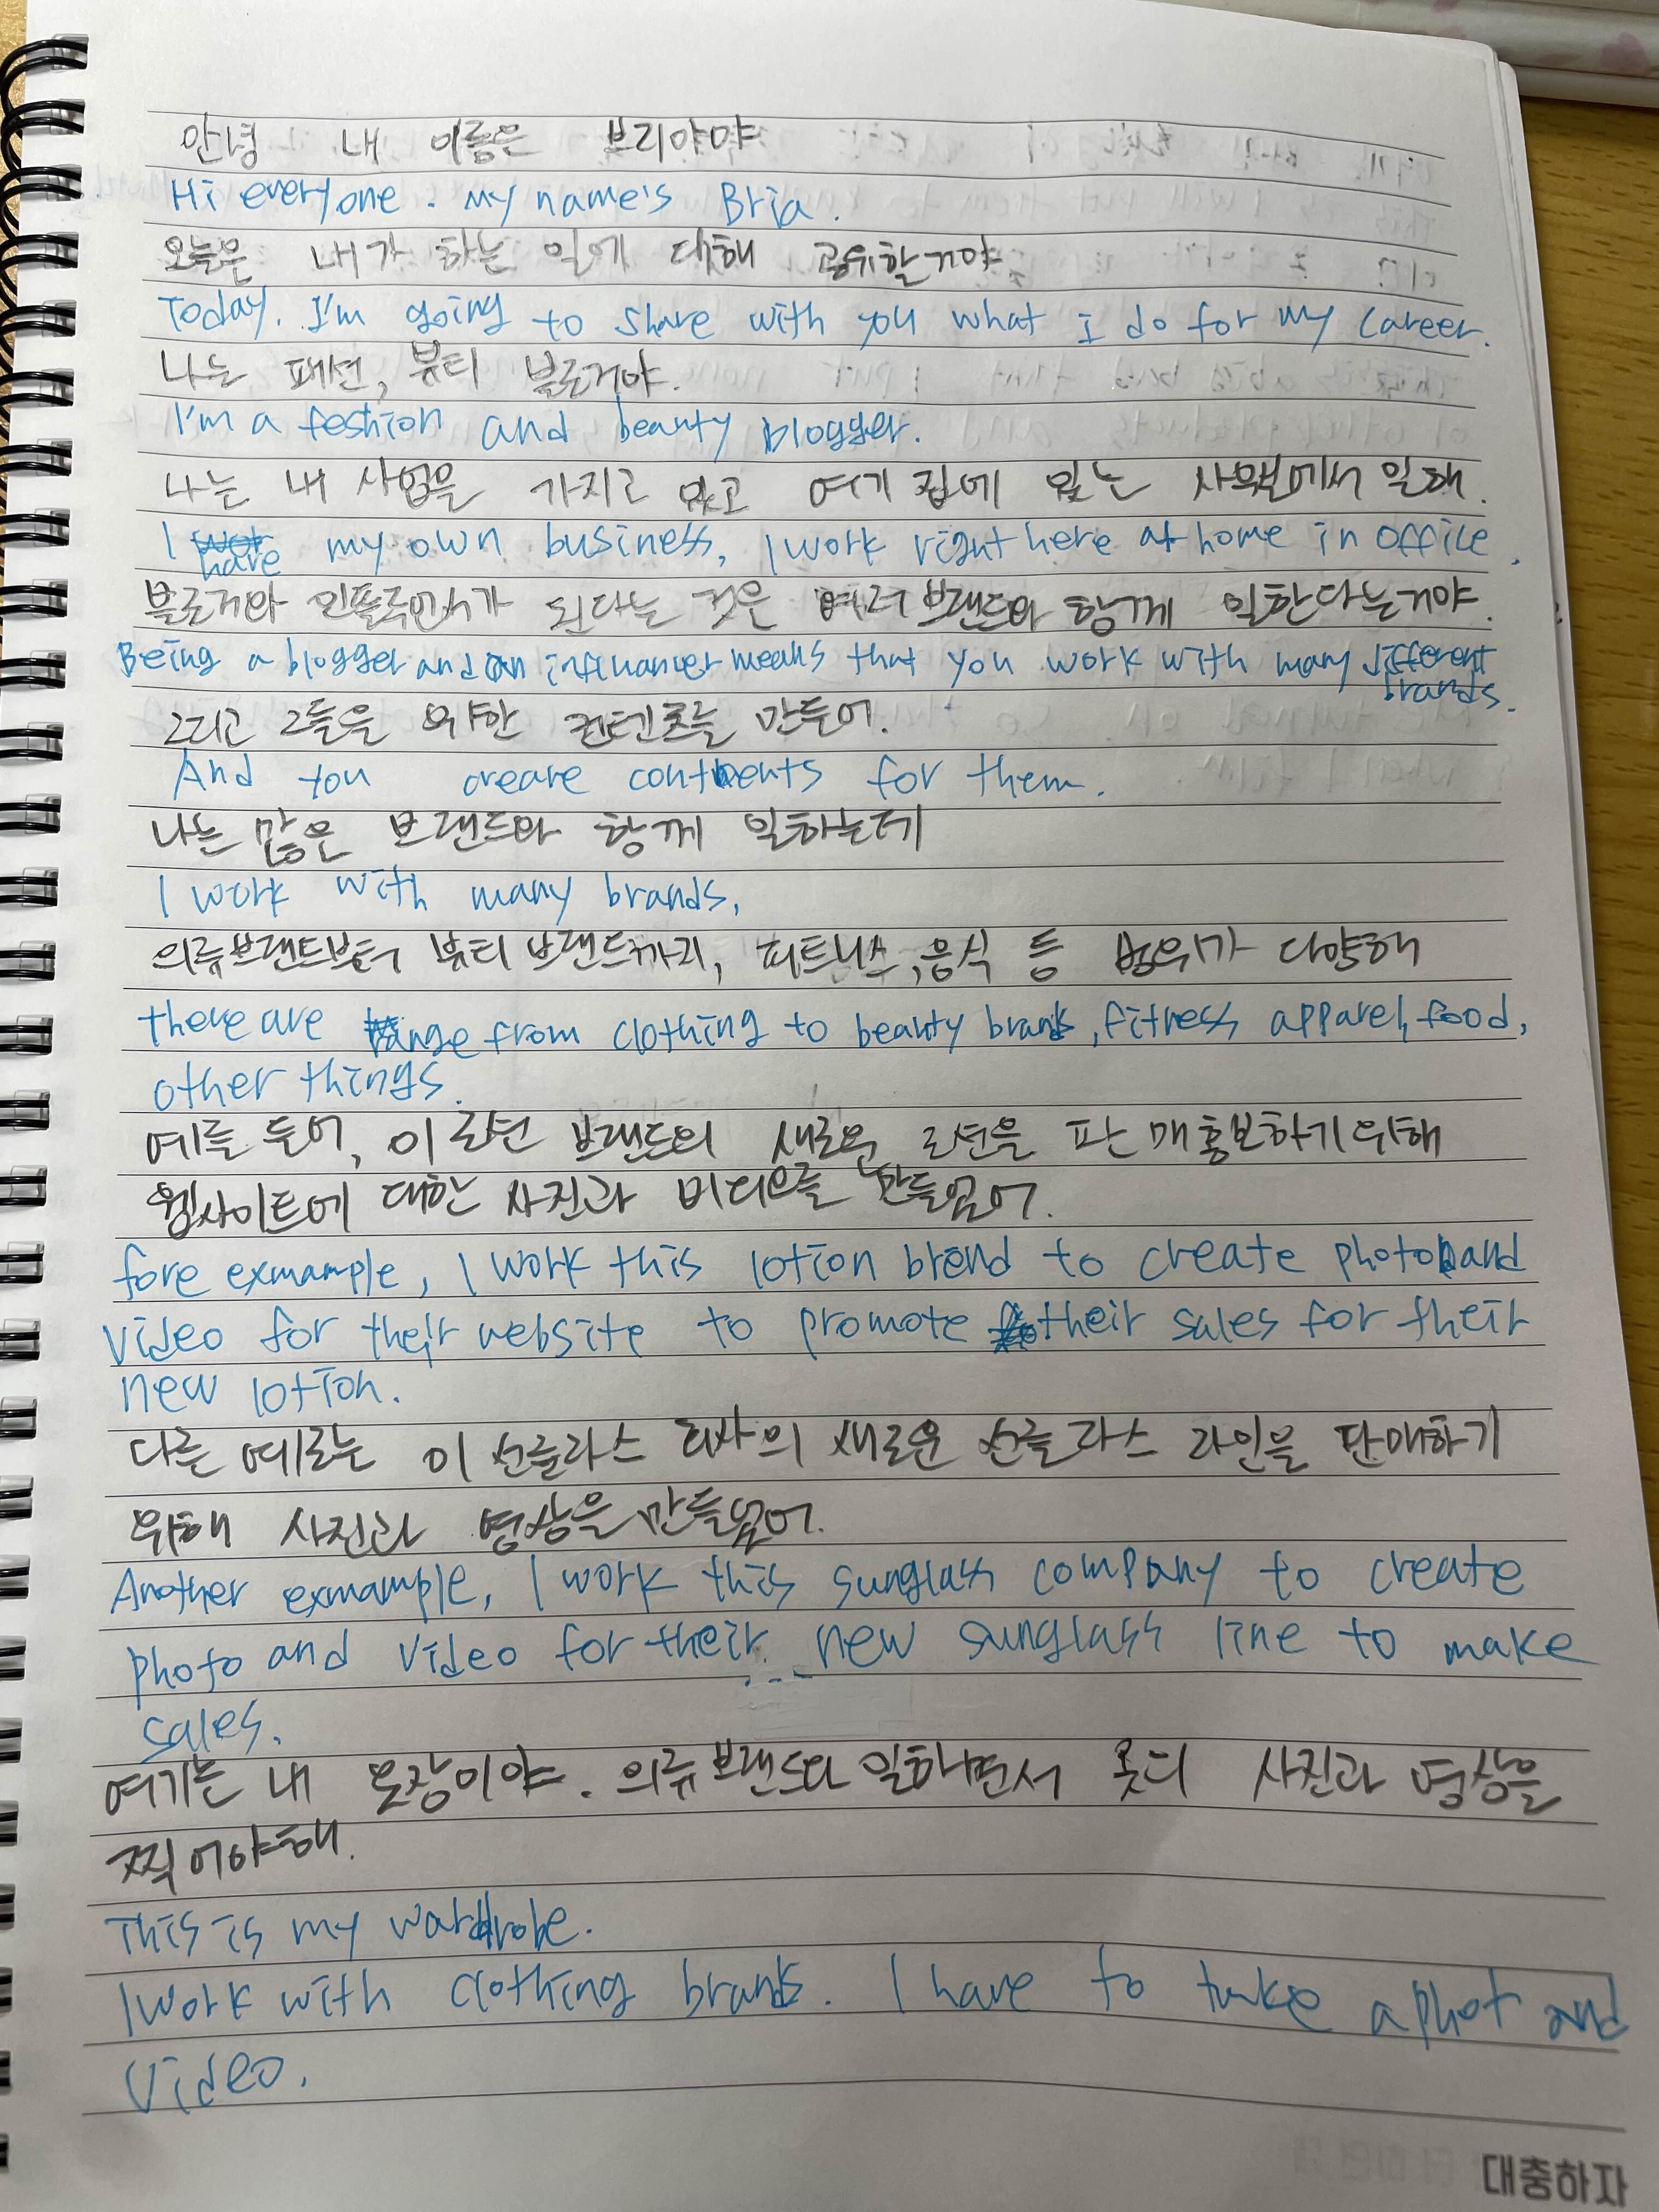 안녕 내 이름은 브리아야
Hi everyone. my name's Bria.
오늘은 내가 하는 일에 대해 공유할거야
Today. I'm going to share with you what I do for my career.
나는 패션, 뷰티 블로거야.
I'm a feshion and beauty blogger.
나는 내 사업을 가지고 있고 여기 집에 있는 사무실에서 일해.
I have my own business, I work right here at home in office.
블로거와 인플루언서가 된다는 것은 여러 브랜드와 함께 일한다는거야.
Being a blogger and an influnancer means that you work with many different
brands.
그리고 그들을 위한 컨텐츠를 만들어.
And you creare contents for them.
나는 많은 브랜드와 함께 일하는데
I work with many brands,
의류브랜드부터 뷰티 브랜드까지, 피트니스, 음식 등 범위가 다양해
there are range from clothing to beauty brands, fitness apparel, food,
other things.
예를 들어, 이 로션 브랜드의 새로운 로션을 판매홍보하기위해
웹사이트에 대한 사진과 비디오를 만들었어.
fore exmample, I work this lotion brend to create photo and
video for their website to promote their sales for their
new lotion.
다른 예로는 이 선글라스 회사의 새로운 선글라스 라인을 판매하기
위해 사진과 영상을 만들었어.
Another exmample, I work this sunglass company to create
photo and video for their new sunglass line to make
sales.
여기는 내 옷장이야. 의류브랜드와 일하면서 옷의 사진과 영상을
찍어야해.
This is my wardrobe.
I work with clothing brands. I have to take a phot and
video.
대충하자